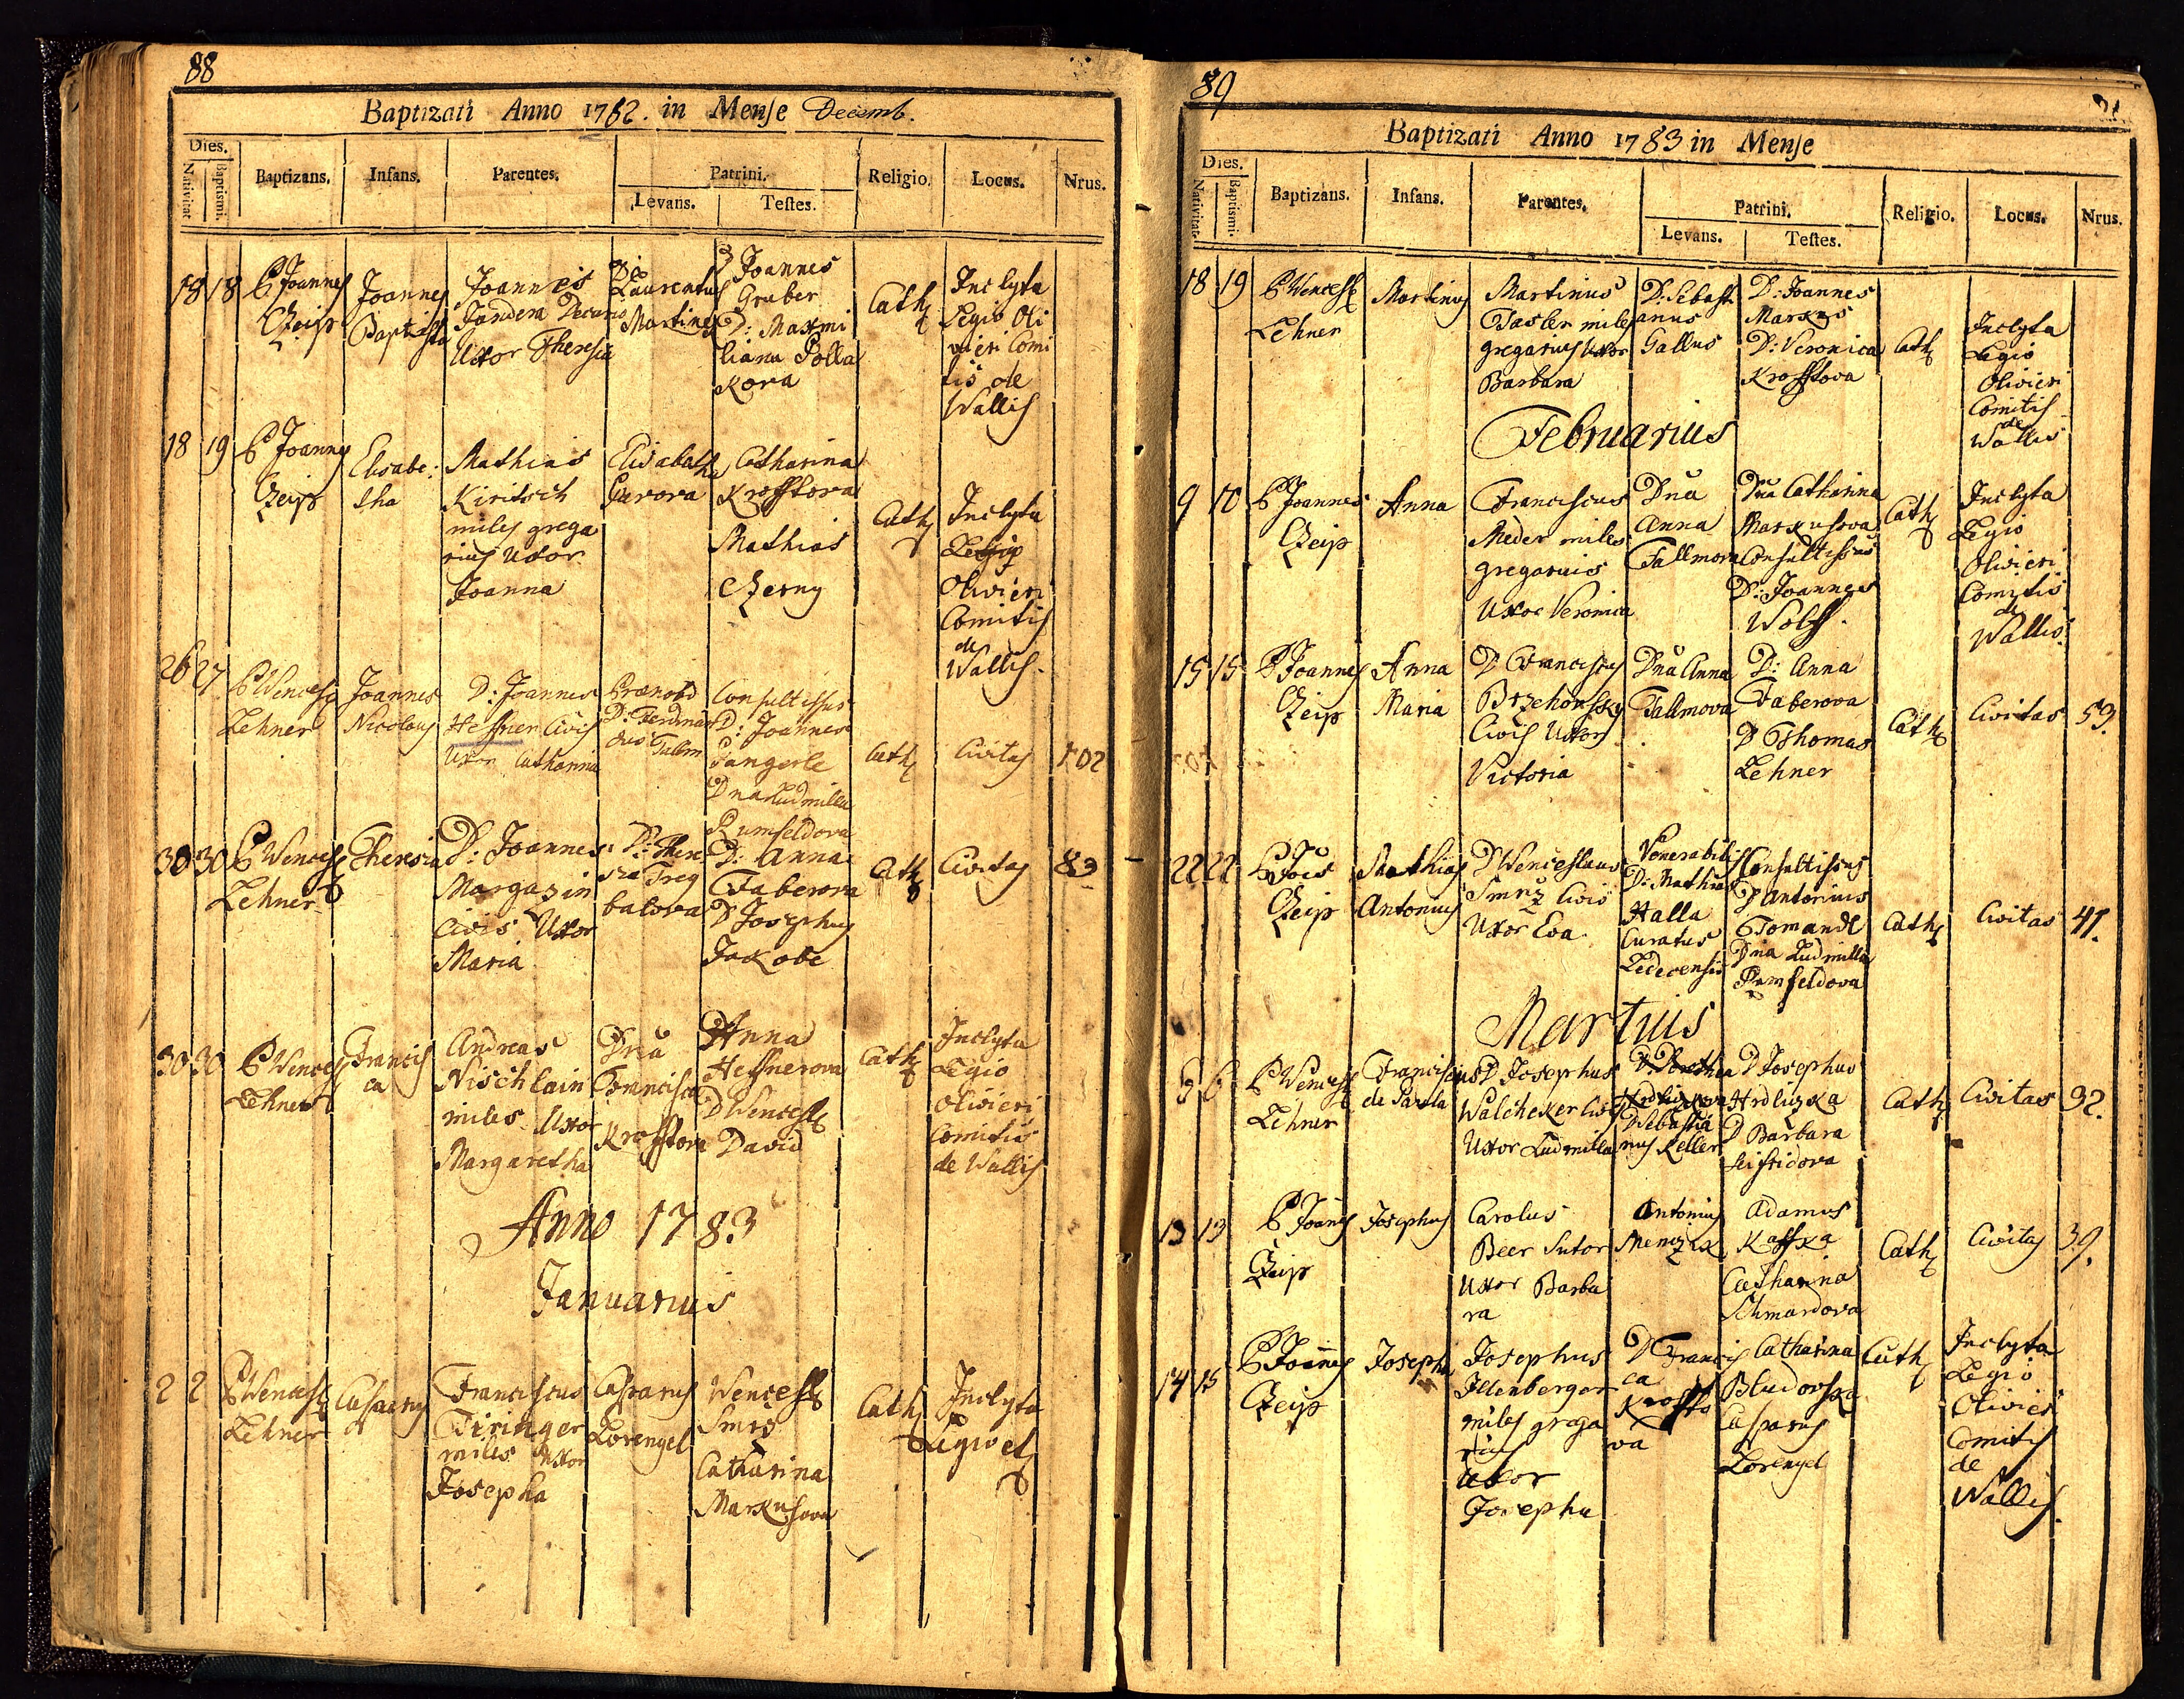 88
Baptizati Anno 1782. in Mense Decemb.
Dies.
Nativitat.
Baptismi.
Baptizans.
Infans.
Parentes.
Patrini.
Levans.
Testes.
Religio.
Locus.
Nrus.
18 18
P Joannes
Czeip
Joannes
Baptista
Joannes
Jandera Decurio
Uxor Theresia
Laurentius
Martinex
Joannes
Gruber
D: Maxmi
liana Polla
kova
Cath
Inclyta
Legio Oli
vieri Comi
tis de
Wallis
18 19
P Joannes
Czeip
Elisabe:
tha
Mathias
Kiritsch
miles grega
rius Uxor
Joanna
Elisabeth
Catharina
Krofftova
Mathias
Czerny
Cath
Inclyta
Legio
Olivieri
Comitis
de
Wallis.
26 27
P Wencesl
Lehner
Joannes
Nicolaus
D: Joannes
Heffner Civis
Uxor Catharina
Prænob
D: Ferdinan
dus Falm
Consultissus
D: Joannes
Pangerle
Dna Ludmilla
Rumfeldova
Cath
Civitas
102
30 30
P Wencesl
Lehner
Theresia
D: Joannes
Margasin
Civis Uxor
Maria
D: There
sia Treg
balova
D: Anna
Faberova
D Josephus
Jakobe
Cath
Civitas
83
30 30
P Wencesl
Lehner
Francis
ca
Andreas
Nischlain
miles Uxor
Margaretha
Dna
Francisca
Krofftova
Anna
Heffnerova
D Wencesl
David
Cath
Inclyta
Legio
Olivieri
Comitis
de Wallis
Anno 1783
Januarius
2 2
P Wencesl
Lehner
Casparus
Franciscus
Tiringer
miles Uxor
Josepha
Casparus
Lorengel
Wencesl
Smrs
Catharina
Markusova
Cath
Inclyta
Legio et
89
Baptizati Anno 1783 in Mense
Dies.
Nativitat.
Baptismi.
Baptizans.
Infans.
Parentes.
Patrini.
Levans.
Testes.
Religio.
Locus.
Nrus.
18 19
P Wencesl
Lehner
Martinus
Martinus
Tasler miles
gregarius Uxor
Barbara
D: Sebasti
anus
Gallus
D: Joannes
Markus
D: Veronica
Krofftova
Cath
Inclyta
Legio
Olivieri
Comitis
de
Wallis
Februarius
9 10
P Joannes
Czeip
Anna
Franciscus
Meder miles
gregarius
Uxor Veronica
Dna
Anna
Fallmova
Dna Catharina
Markusova
Consultissus
D: Joannes
Wolff.
Cath
Inclyta
Legio
Olivieri
Comitis
de
Wallis.
15 15
P Joannes
Czeip
Anna
Maria
D Franciscus
Brzehowsky
Civis Uxor
Victoria
Dna Anna
Fallmova
D: Anna
Faberova
D Thomas
Lehner
Cath
Civitas
53.
22 22
P Joes
Czeip
Mathias
Antonius
D Wenceslaus
Smrz Civis
Uxor Eva
Venerabilis
D: Mathias
Halla
Curatus
Ledecensis
Consultissus
D Antonius
Tomandl
Dna Ludmilla
Rumfeldova
Cath
Civitas
41.
Martius
6
P Wencesl
Lehner
Franciscus
de Paula
D Josephus
Walcheker Civis
Uxor Ludmilla
D. Dorothea
Hrdliczkova
D Sebastia
nus Keller
D Josephus
Hrdliczka
D Barbara
Cath
Civitas
92.
13 13
P Joanes
Czeip
Josephus
Carolus
Beer Sutor
Uxor Barba
ra
Antonius
Menczik
Adamus
Kaffka
Catharina
Schmardova
Cath
Civitas
39.
14 15
P Joannes
Czeip
Josepha
Josephus
Illenberger
miles grega
rius
Uxor
Josepha
D Francis
ca
Kroffto
va
Catharina
Bludovska
Casparus
Lorengel
Cath
Inclyta
Legio
Olivieri
Comitis
de
Wallis.